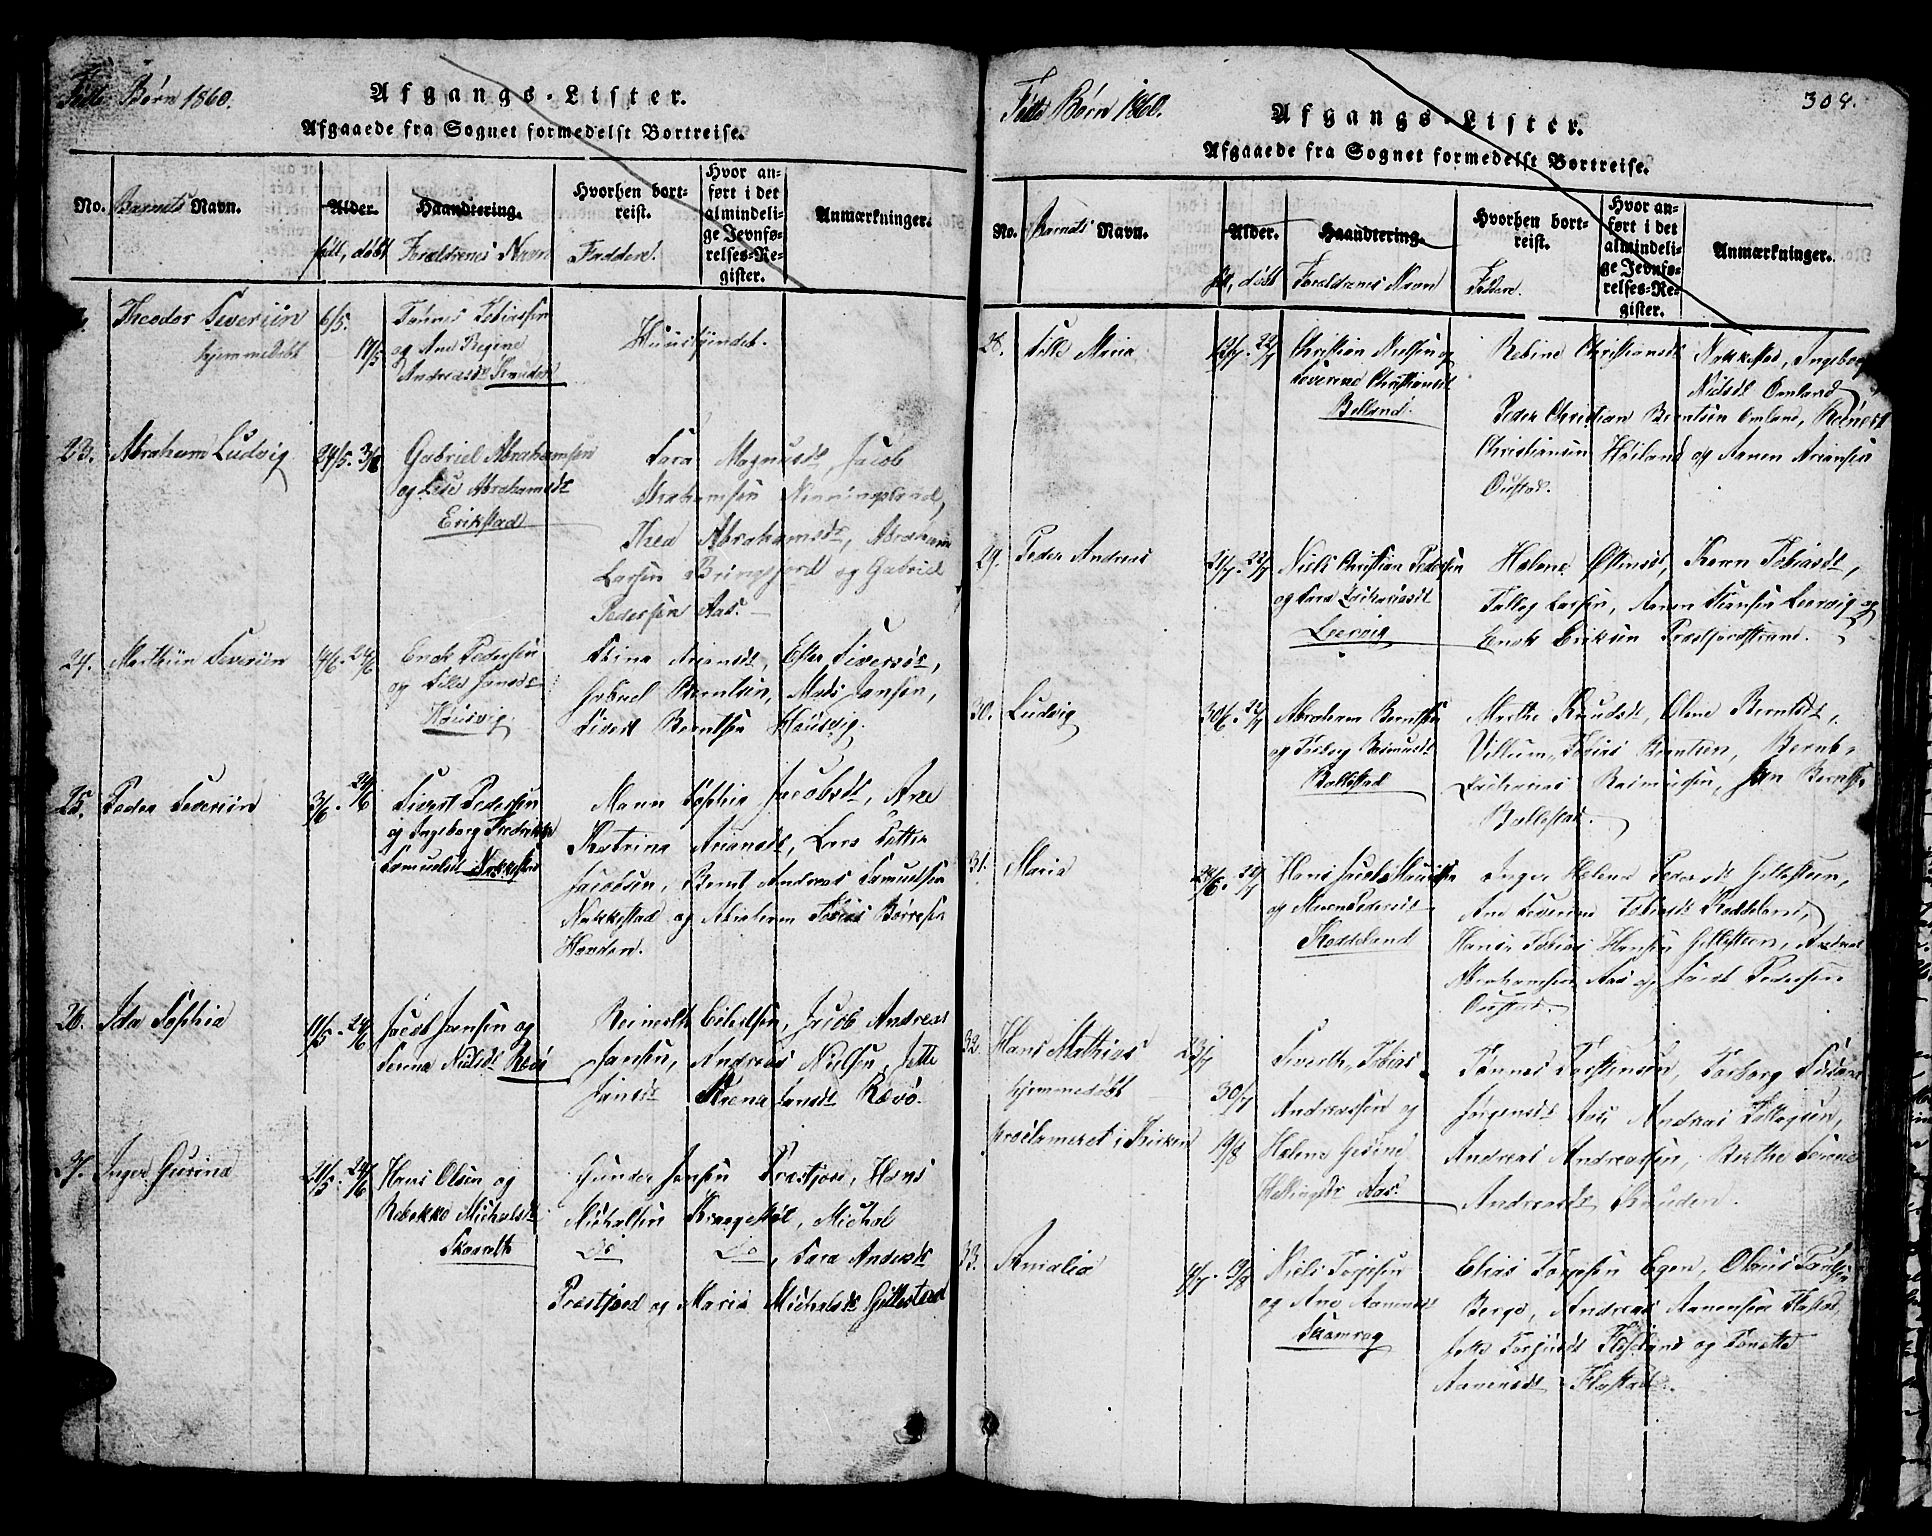 Fødte Børn 1860.
Afgangs-Lister.
Afgaaede fra Sognet formedelst Bortreise.
No.
Barnets Navn.
Alder.
født, døbt
Haandtering.
Forældrenes Navn
Hvorhen bort-
reist.
Faddere.
Hvor an-
ført i det
almindeli-
ge Jevnfø-
relses-Re-
gister.
Anmærkninger.
Theodor Severin
hjemmedøbt
6/5.
17/5
Tønnes Tobiassen
og Ane Regine
Andreasdt Knuden
Huusfindet.
23.
Abraham Ludvig
24/5. 3/6
Gabriel Abrahamsen
og Lise Abrahamsdt
Erikstad
Sara Magnusdt, Jacob
Abrahamsen
Thea Abrahamsdt, Abraham
Larsen Bringsjord og Gabriel
Pedersen Aas.
24.
Mathiin Severin
4/6. 24/6
Enok Pedersen
og Sille Jansdt
Hausvig.
Stina Ariansdt, Ester Siversdt,
Gabriel Berntsen, Mads Jansen,
Sivert Berntsen Hausvig.
25.
Peder Severin
3/6. 24/6
Sivert Pedersen
og Ingeborg Fredrikke
Samuelsdt Nakkestad
Maren Sophia Jacobsdt, Ane
Katrina Ariansdt, Lars Petter
Jacobsen, Bernt Andreas Samuelsen
Nakkestad og Abraham Tobias Børresen
Hovden.
26.
Ida Sophia
11/5. 24/6
Jacob Jansen og
Serina Nielsdt Rævø
Reinert Eilertsen, Jacob Andreas
Jansen, Andreas Nielsen, Jette
Jansdt Stena Jansdt Rævø.
27.
Inger Gurina
21/5. 24/6
Hans Olsen og
Rebekka Michalsdt
Skarveth
Gunder Jansen Præstjord, Hans
Michalsen Kragestøl, Michal
Do Do, Sara Andersdt
Præstjord og Maria Michalsdt Gillestad
Fødte Børn 1860.
308.
Afgangs-Lister.
Afgaaede fra Sognet formedelst Bortreise.
No.
Barnets Navn.
Alder.
født, døbt
Haandtering.
Forældrenes Navn
Hvorhen bort-
reist.
Faddere.
Hvor an-
ført i det
almindeli-
ge Jevnfø-
relses-Re-
gister.
Anmærkninger.
28.
Sille Maria
12/7. 22/7
Christian Nielsen og
Severine Christiansdt
Belland.
Rebine Christiansdt Nakkestad, Ingeborg
Nielsdt Omland,
Peder Christian Berntsen Omland, Reinert
Christiansen Høiland og Aanen Ariansen
Oustad.
29.
Peder Andreas
21/7. 22/7
Niels Christian Pedersen
og Sara Zachariasdt
Leervig
Helene Olsdt, Karen Tobiasdt,
Tallag Larsen, Aanen Stiansen Leervig og
Enok Eriksen Præstjordstrand.
30.
Ludvig
30/6. 22/7
Abraham Berntsen
og Torborg Rasmusdt
Ballestad
Marthe Knudsdt, Olene Berntsdt,
Villum Tobias Berntsen, Bernt
Zacharias Rasmussen, Jan Berntsen
Ballestad.
31.
Maria
22/7
Hans Jacob Mauritsen
og Maren Pedersdt
Kaddeland
Inger Helene Pedersdt Gillesteen,
Ane Severine Tobiasdt Kaddeland,
Hans Tobias Hansen Gillesteen, Andreas
Abrahamsen Aas og Jacob Pedersen
Oustad.
32.
Hans Mathias
hjemmedøbt
proclameret i Kirken
23/7
30/7
19/8
Siverth Tobias
Andreassen og
Helene Gesine
Hellingsdt Aas.
Tønnes Torstensen, Torborg Susanne
Jørgensdt Aas, Andreas Tallagsen,
Andreas Andreassen, Berthe Serine
Andreasdt Knuden.
33.
Amalia
4/7. 19/8
Niels Torjesen
og Ane Aanensdt
Skomrag
Elias Torjesen Egen, Olaus Paulsen
Bergø, Andreas Aanensen Flastad,
Jette Torjusdt Flisland og Tonette
Aanensdt Flastad.